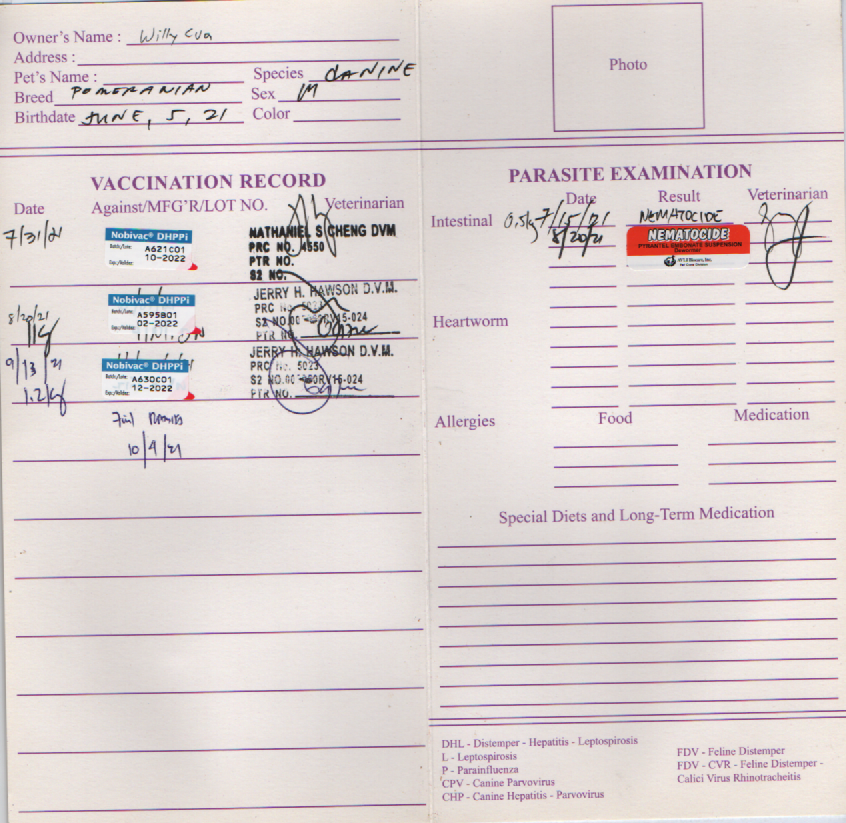 Owner's Name : Willy Cua
Address :
Pet's Name :
Species CANINE
Breed POMERANIAN
Sex M
Birthdate JUNE, 5, 21
Color
Photo
VACCINATION RECORD
Date Against/MFG'R/LOT NO. Veterinarian
7/31/21
Nobivac® DHPPi
A621C01
10-2022
NATHANIEL S CHENG DVM
PRC NO. 4550
PTR NO.
S2 NO.
8/20/21
1kg
Nobivac® DHPPi
A595B01
02-2022
JERRY H. HAWSON D.V.M.
PRC No. 5023
PTR NO.
9/13/21
1.2kg
Nobivac® DHPPi
A630C01
12-2022
JERRY H. HAWSON D.V.M.
PRC No. 5023
PTR NO.
10/9/21
PARASITE EXAMINATION
Date Result Veterinarian
Intestinal 0.5kg 7/15/21 NEMATOCIDE
8/20/21
NEMATOCIDE®
PYRANTEL EMBONATE SUSPENSION
Heartworm
Allergies Food Medication
Special Diets and Long-Term Medication
DHL - Distemper - Hepatitis - Leptospirosis
L - Leptospirosis
P - Parainfluenza
CPV - Canine Parvovirus
CHP - Canine Hepatitis - Parvovirus
FDV - Feline Distemper
FDV - CVR - Feline Distemper -
Calici Virus Rhinotracheitis